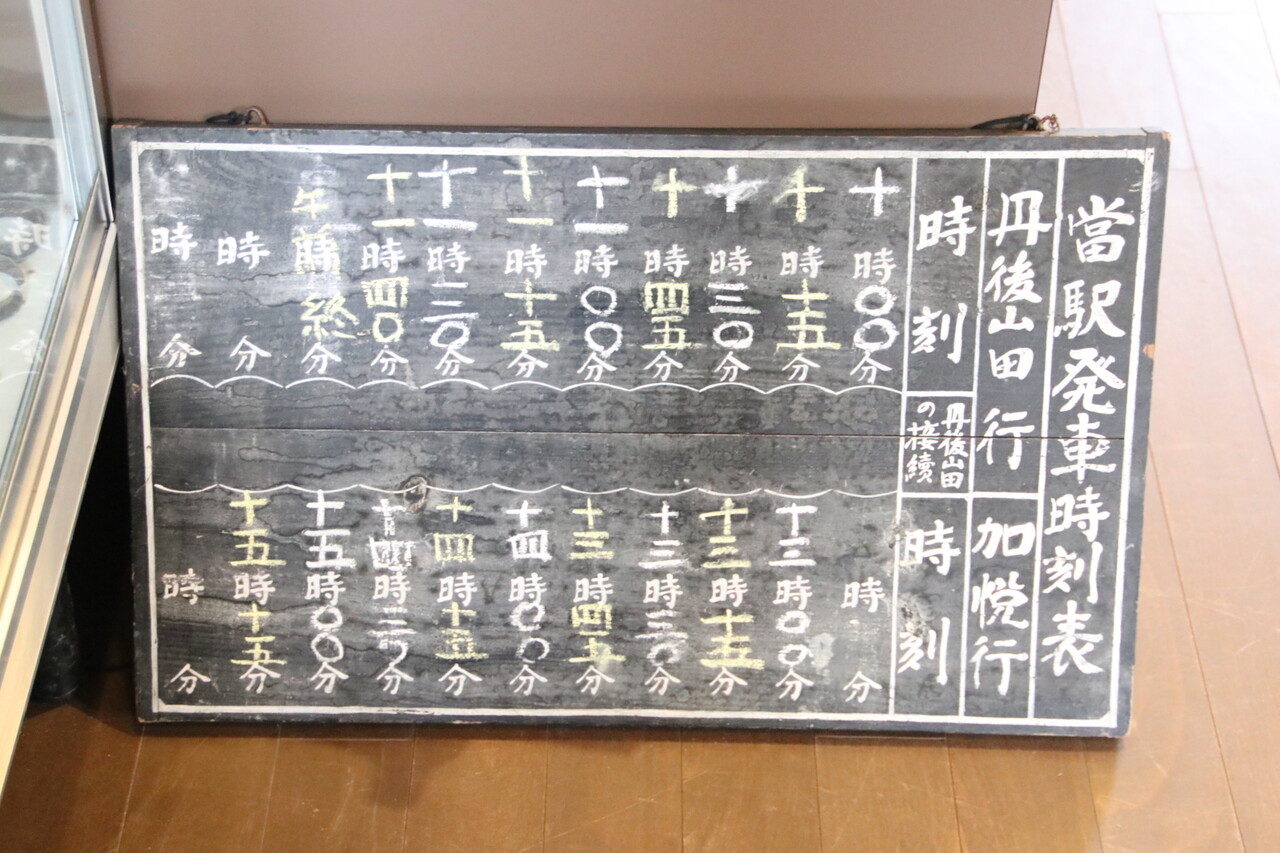 當駅発車時刻表
丹後山田行
加悦行
時刻
丹後山田
の接續
時刻
十時〇〇分
十時十五分
十時三〇分
十時四五分
十一時〇〇分
十一時十五分
十一時三〇分
十一時四〇分
午前終分
時分
時分
時分
十三時〇〇分
十三時十五分
十三時三〇分
十三時四五分
十四時〇〇分
十四時十五分
十四時三〇分
十五時〇〇分
十五時十五分
時分